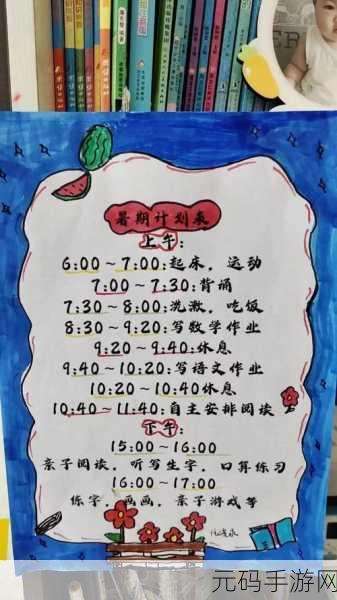 暑期计划表
上午:
6:00~7:00:起床,运动
7:00~7:30:背诵
7:30~8:00:洗漱,吃饭
8:30~9:20:写数学作业
9:20~9:40:休息
9:40~10:20:写语文作业
10:20~10:40休息
10:40~11:40:自主安排阅读
下午:
15:00~16:00
亲子阅读,听写生字,口算练习
16:00~17:00
练字,画画,亲子游戏等
元码手游网